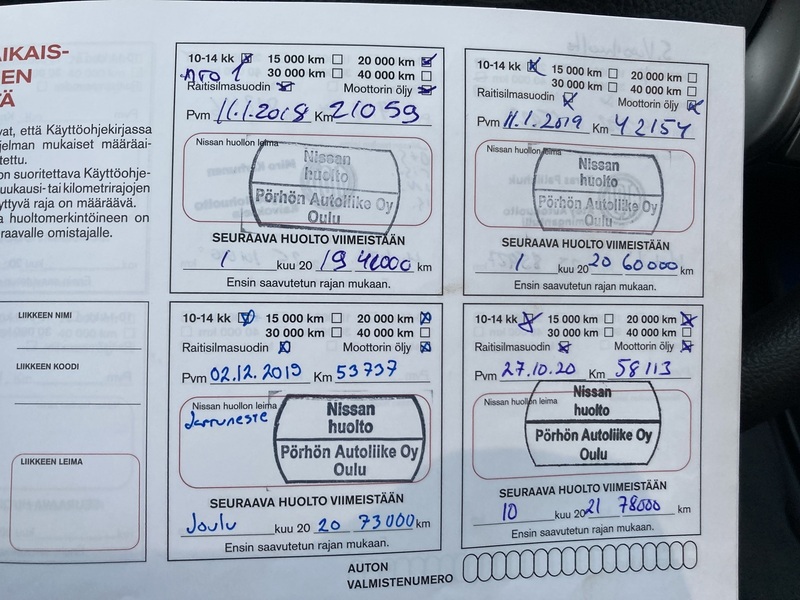 AIKAIS-
EEN
TÄ
vat, että Käyttöohjekirjassa
jelman mukaiset määräai-
tettu.
on suoritettava Käyttöohje-
uukausi- tai kilometrirajojen
yttyvä raja on määräävä.
a huoltomerkintöineen on
raavalle omistajalle.
LIIKKEEN NIMI
LIIKKEEN KOODI
LIIKKEEN LEIMA
10-14 kk 15 000 km 20 000 km
30 000 km 40 000 km
Raitisilmasuodin Moottorin öljy
Pvm 11.1.2018 Km 21059
Nissan huollon leima
Nissan
huolto
Pörhön Autoliike Oy
Oulu
SEURAAVA HUOLTO VIIMEISTÄÄN
1 kuu 20 19 41000 km
Ensin saavutetun rajan mukaan.
10-14 kk 15 000 km 20 000 km
30 000 km 40 000 km
Raitisilmasuodin Moottorin öljy
Pvm 11.1.2019 Km 42154
Nissan huollon leima
Nissan
huolto
Pörhön Autoliike Oy
Oulu
SEURAAVA HUOLTO VIIMEISTÄÄN
1 kuu 20 20 60000 km
Ensin saavutetun rajan mukaan.
10-14 kk 15 000 km 20 000 km
30 000 km 40 000 km
Raitisilmasuodin Moottorin öljy
Pvm 02.12.2019 Km 53737
Nissan huollon leima
Jarruneste
Nissan
huolto
Pörhön Autoliike Oy
Oulu
SEURAAVA HUOLTO VIIMEISTÄÄN
Joulu kuu 20 20 73000 km
Ensin saavutetun rajan mukaan.
10-14 kk 15 000 km 20 000 km
30 000 km 40 000 km
Raitisilmasuodin Moottorin öljy
Pvm 27.10.20 Km 58113
Nissan huollon leima
Nissan
huolto
Pörhön Autoliike Oy
Oulu
SEURAAVA HUOLTO VIIMEISTÄÄN
10 kuu 20 21 78000 km
Ensin saavutetun rajan mukaan.
AUTON
VALMISTENUMERO